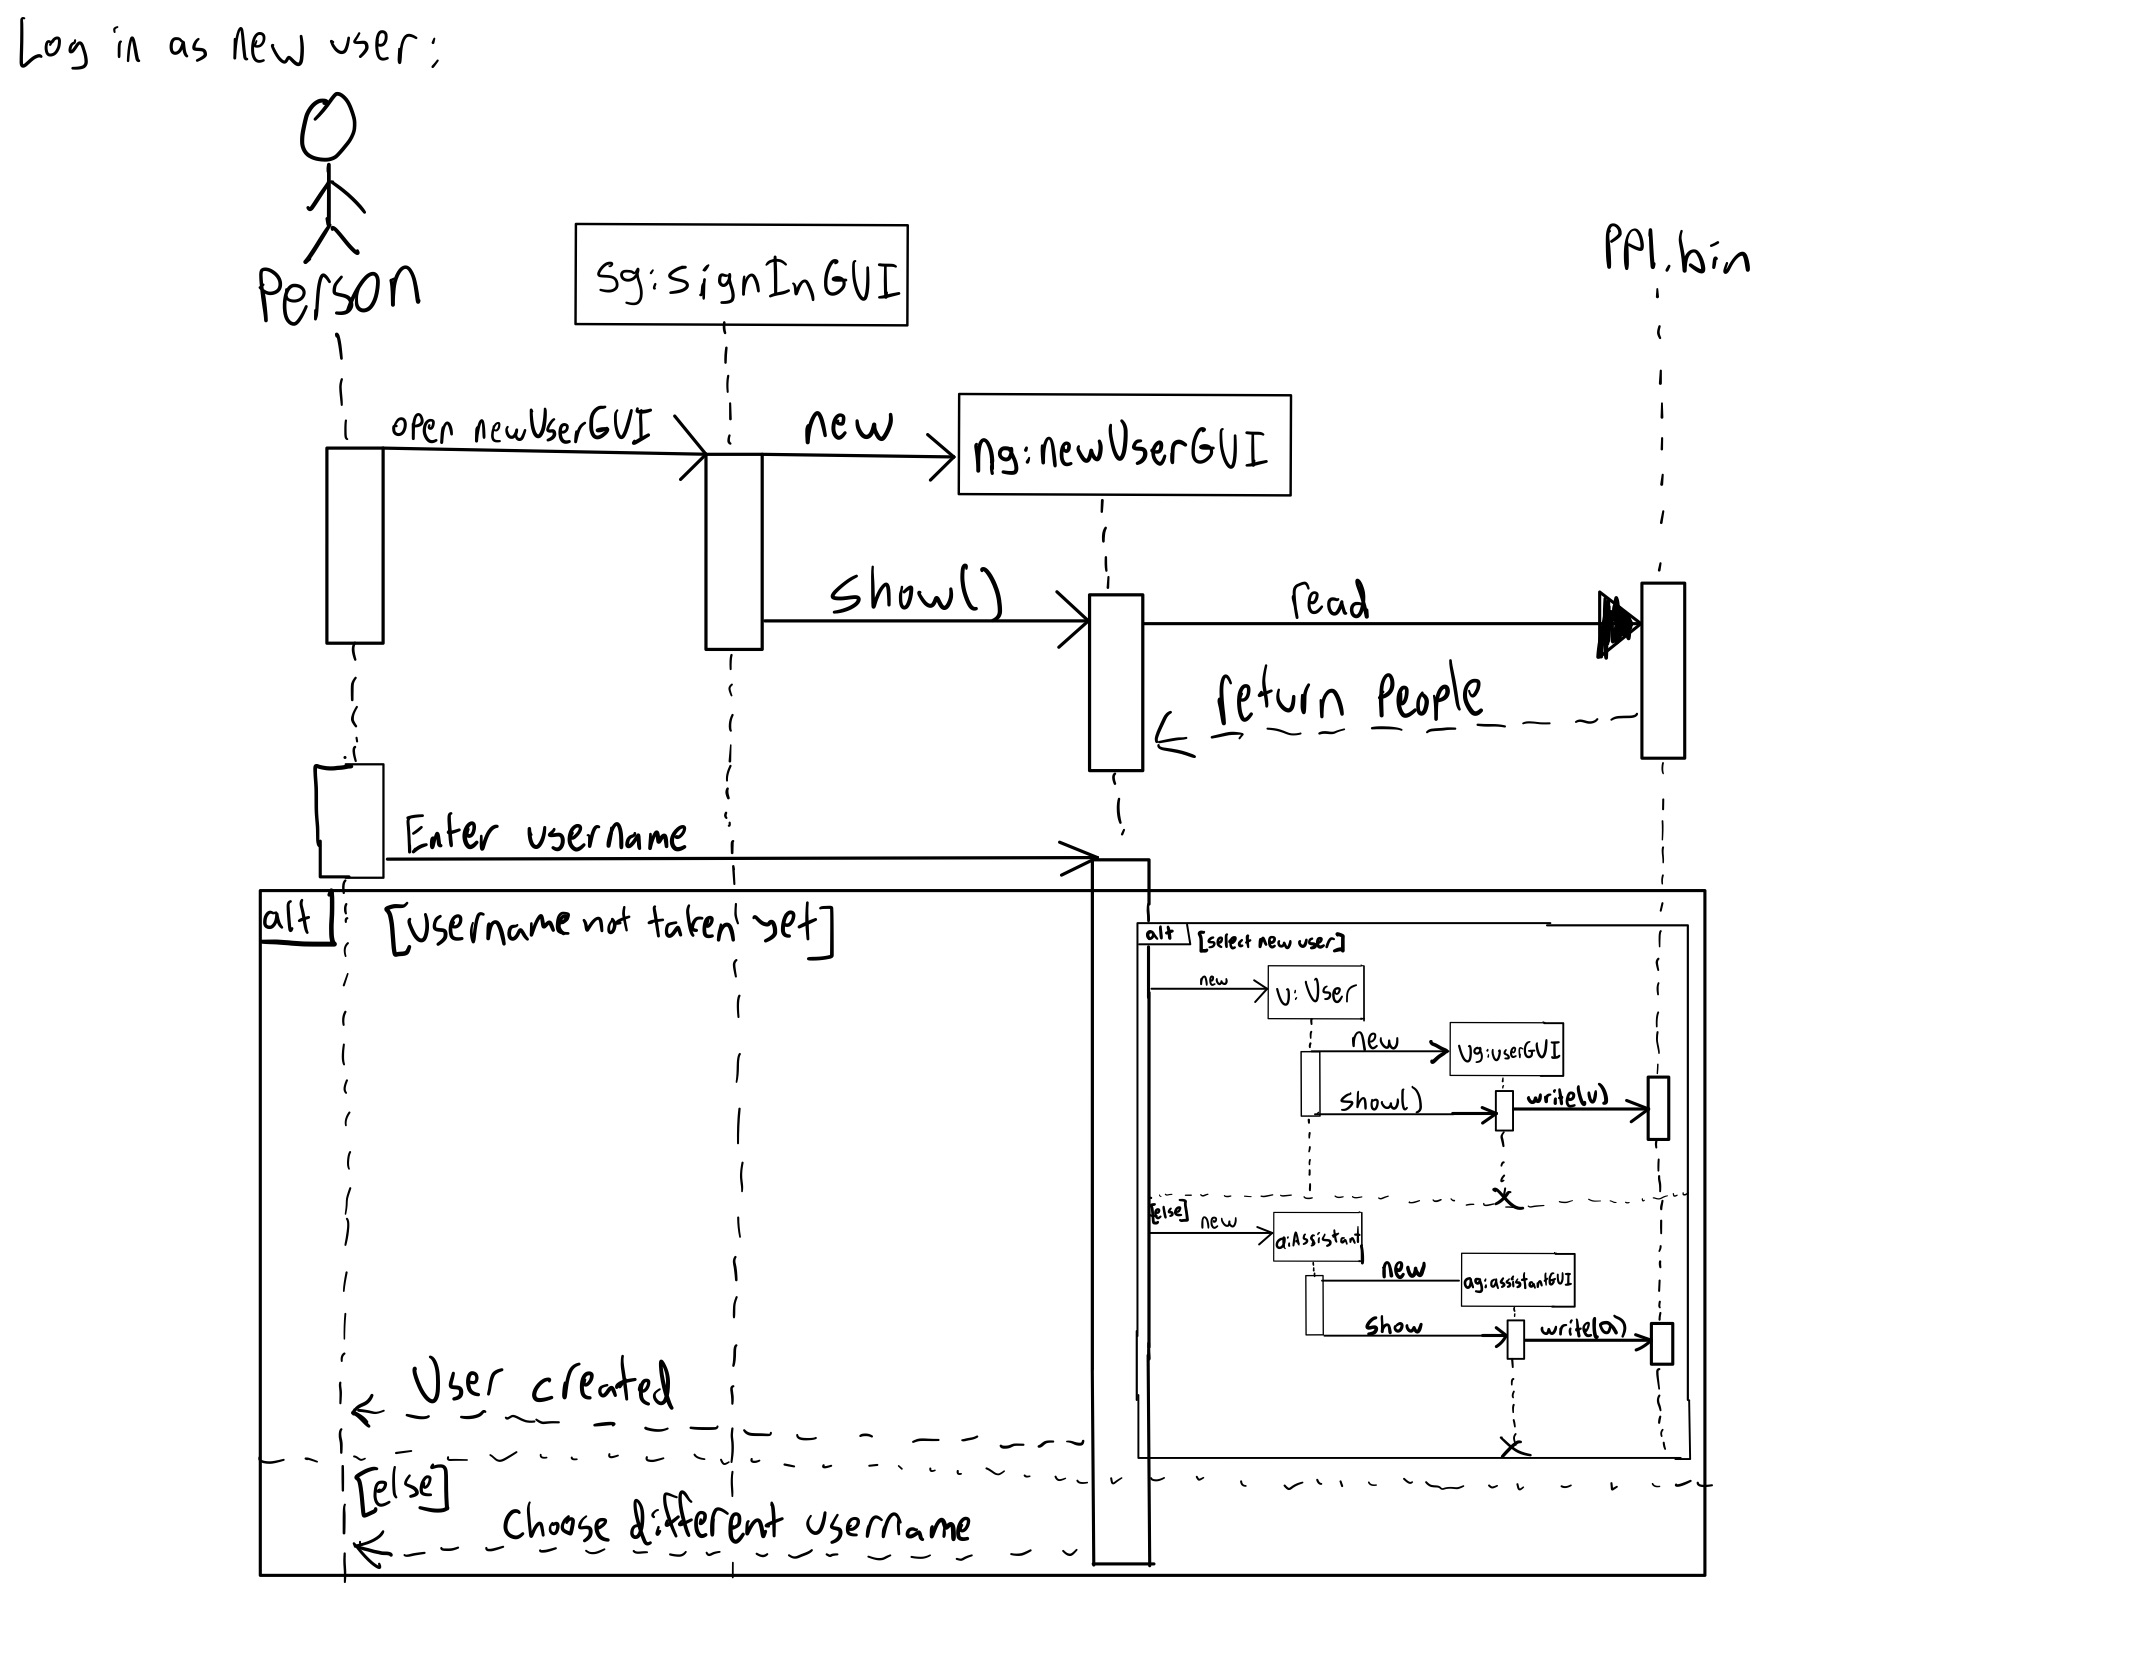 Log in as new user:
Person
sg:signInGUI
PPl.bin
open newUserGUI
new
ng:newUserGUI
show()
read
return people
Enter username
alt
[Username not taken yet]
alt
[select new user]
new
u: User
new
Ug:userGUI
show()
write(u)
[else]
new
a:Assistant
new
ag:assistantGUI
show
write(a)
User created
[else]
Choose different username